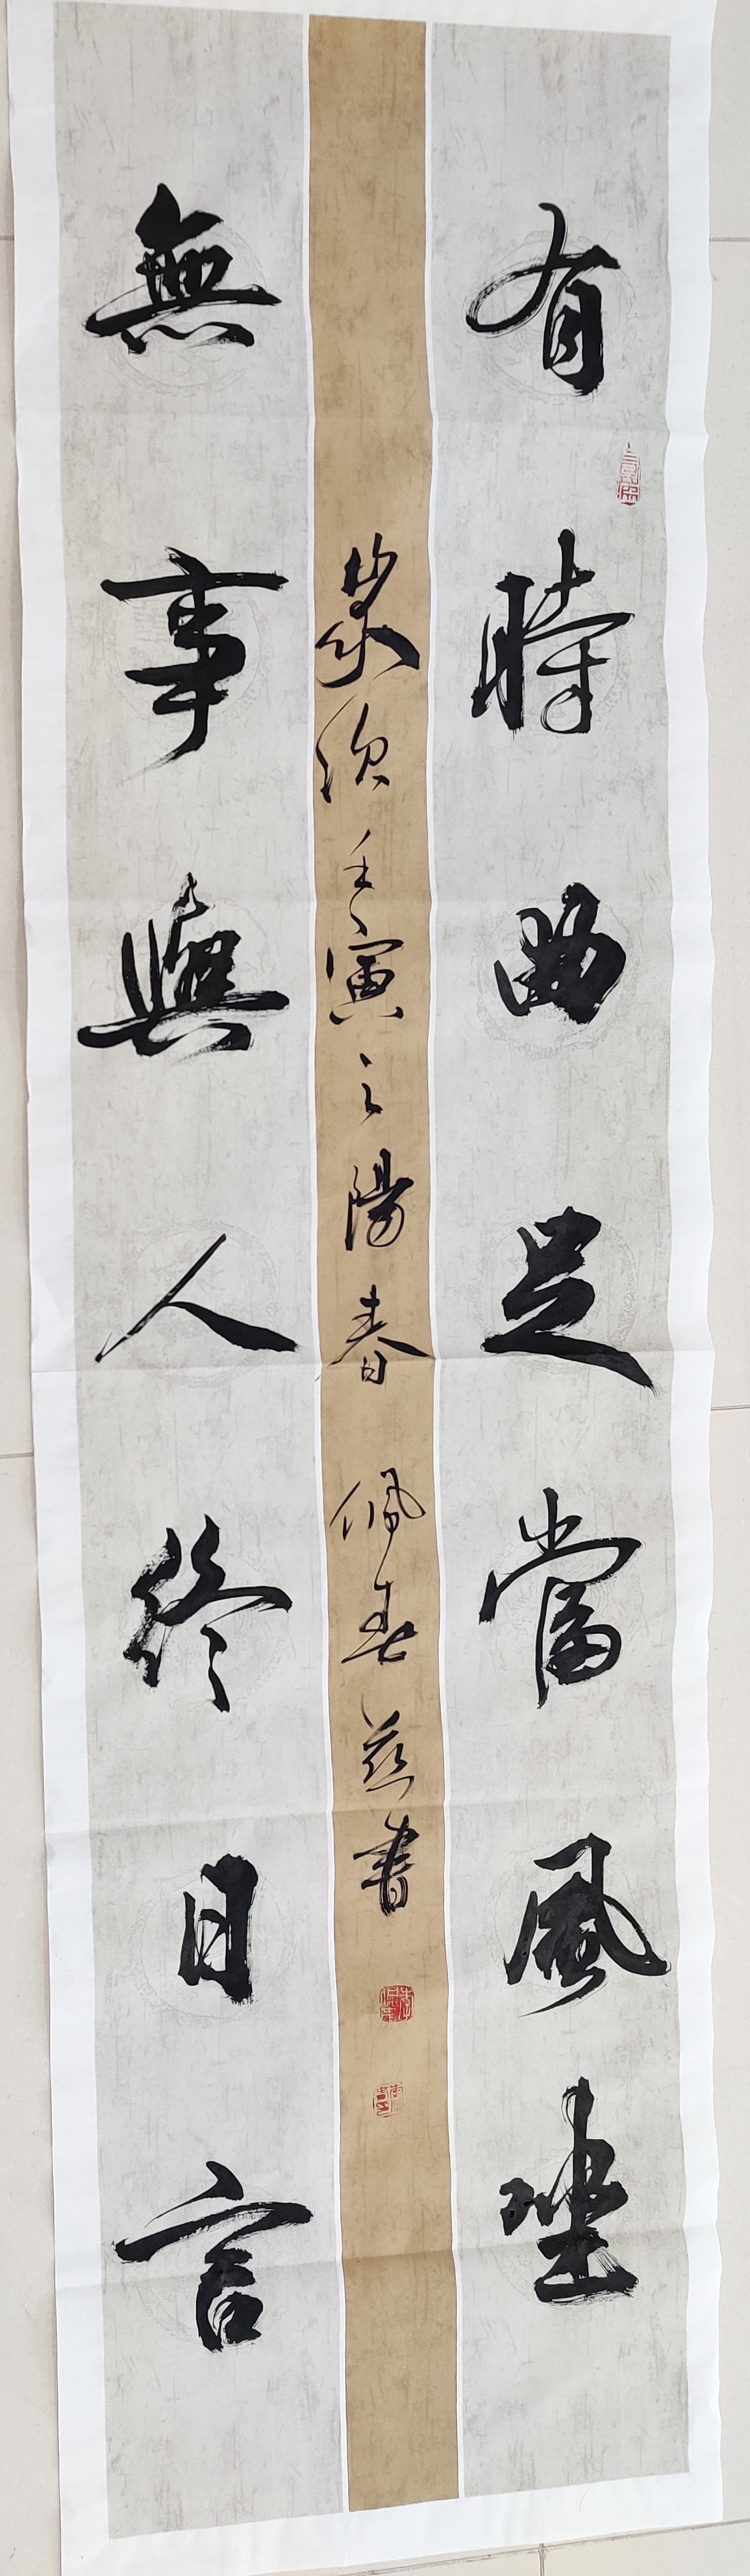 有時曲足當風坐
無事與人終日言
歲次壬寅之陽春 佩書